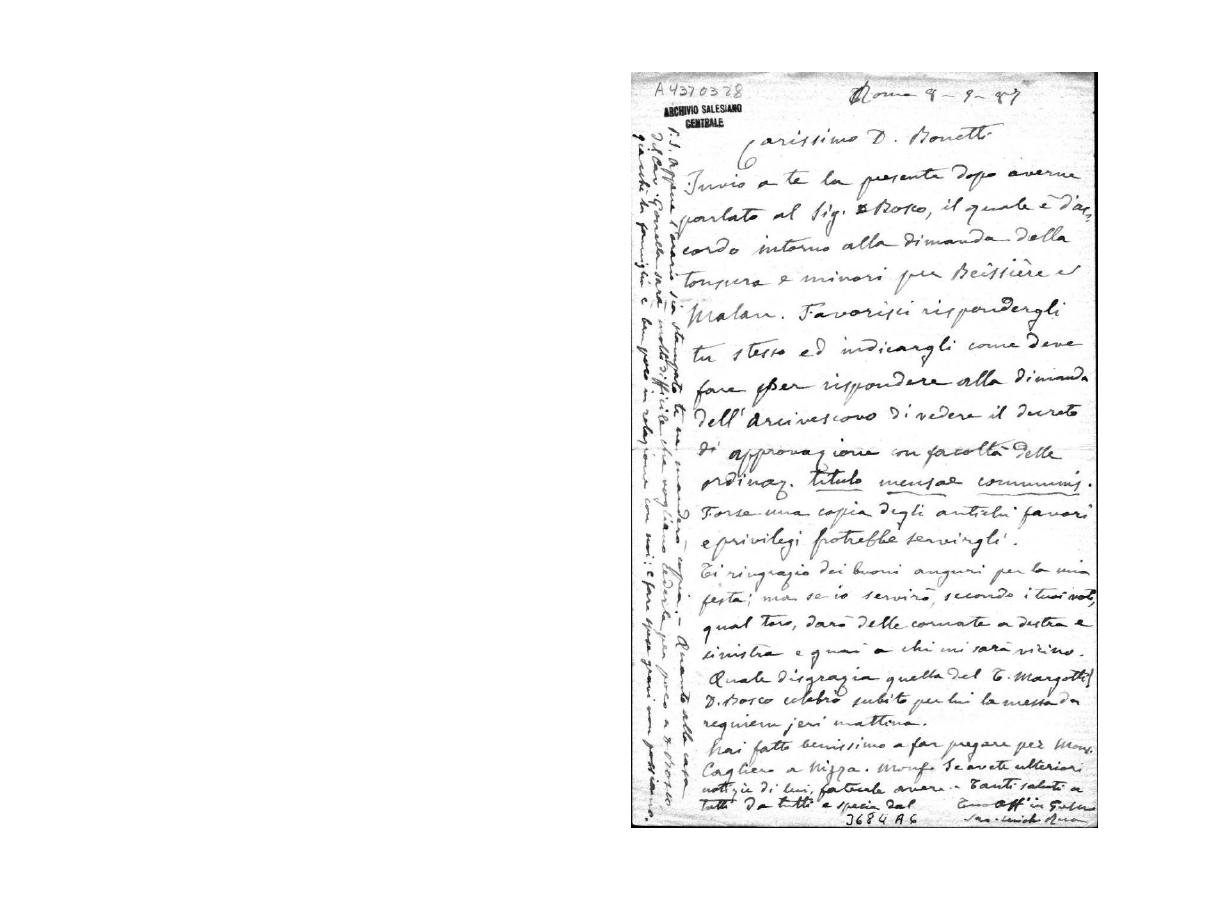 A 4370378
ARCHIVIO SALESIANO
CENTRALE
Roma 8-5-87
Carissimo D. Bonetti
Invio a te la presente dopo averne
parlato al Sig. D Bosco, il quale è d'ac,
cordo intorno alla dimanda della
tonsura e minori per Beissière e
Malan. Favorisci rispondergli
tu stesso ed indicargli come deve
fare per rispondere alla dimanda
dell'Arcivescovo di vedere il decreto
di approvazione con facoltà delle
ordinaz. titulo mensae communis.
Forse una copia degli antichi favori
e privilegi potrebbe servirgli.
Ti ringrazio dei buoni auguri per la mia
festa; ma se io servirò, secondo i tuoi voti,
qual toro, darò delle cornate a destra e
sinistra e guai a chi mi sarà vicino.
Quale disgrazia quella del T. Margotti!
D. Bosco celebrò subito per lui la messa da
requiem jeri mattina.
Hai fatto benissimo a far pregare per Mons.
Cagliero a Nizza. Monf. Se avete ulteriori
notizie di lui, fatecele avere. - Tanti saluti a
tutti da tutti e specie dal
Tuo Aff. in G.
Sac. Mich. Rua
3684 A6
P.S. Appena l'orario sia stampato te ne manderò copia. - Quanto alla casa
del Cav. Gonella sarà molto difficile che vogliano cederla per poco a D Bosco
giacchè la famiglia è ben poco in relazione con noi: e fare spese gravi non possiamo.